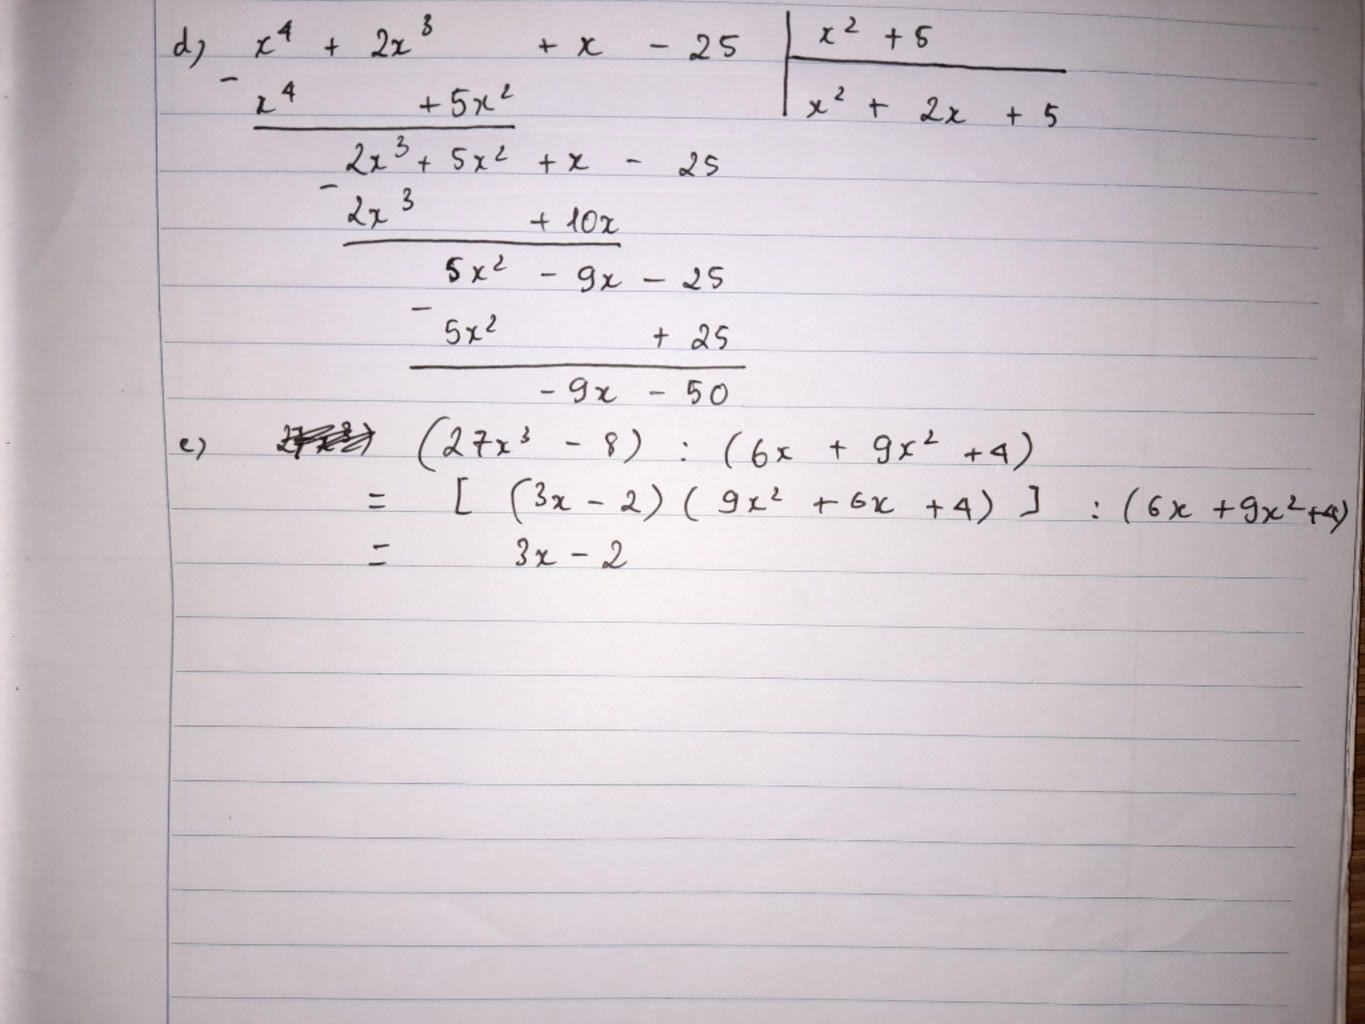 d) x⁴ + 2x³ + x - 25 | x² + 5
- x⁴ + 5x² | x² + 2x + 5
2x³ + 5x² + x - 25
- 2x³ + 10x
5x² - 9x - 25
- 5x² + 25
- 9x - 50
e) (27x³ - 8) : (6x + 9x² + 4)
= [ (3x - 2) ( 9x² + 6x + 4) ] : (6x + 9x² + 4)
= 3x - 2